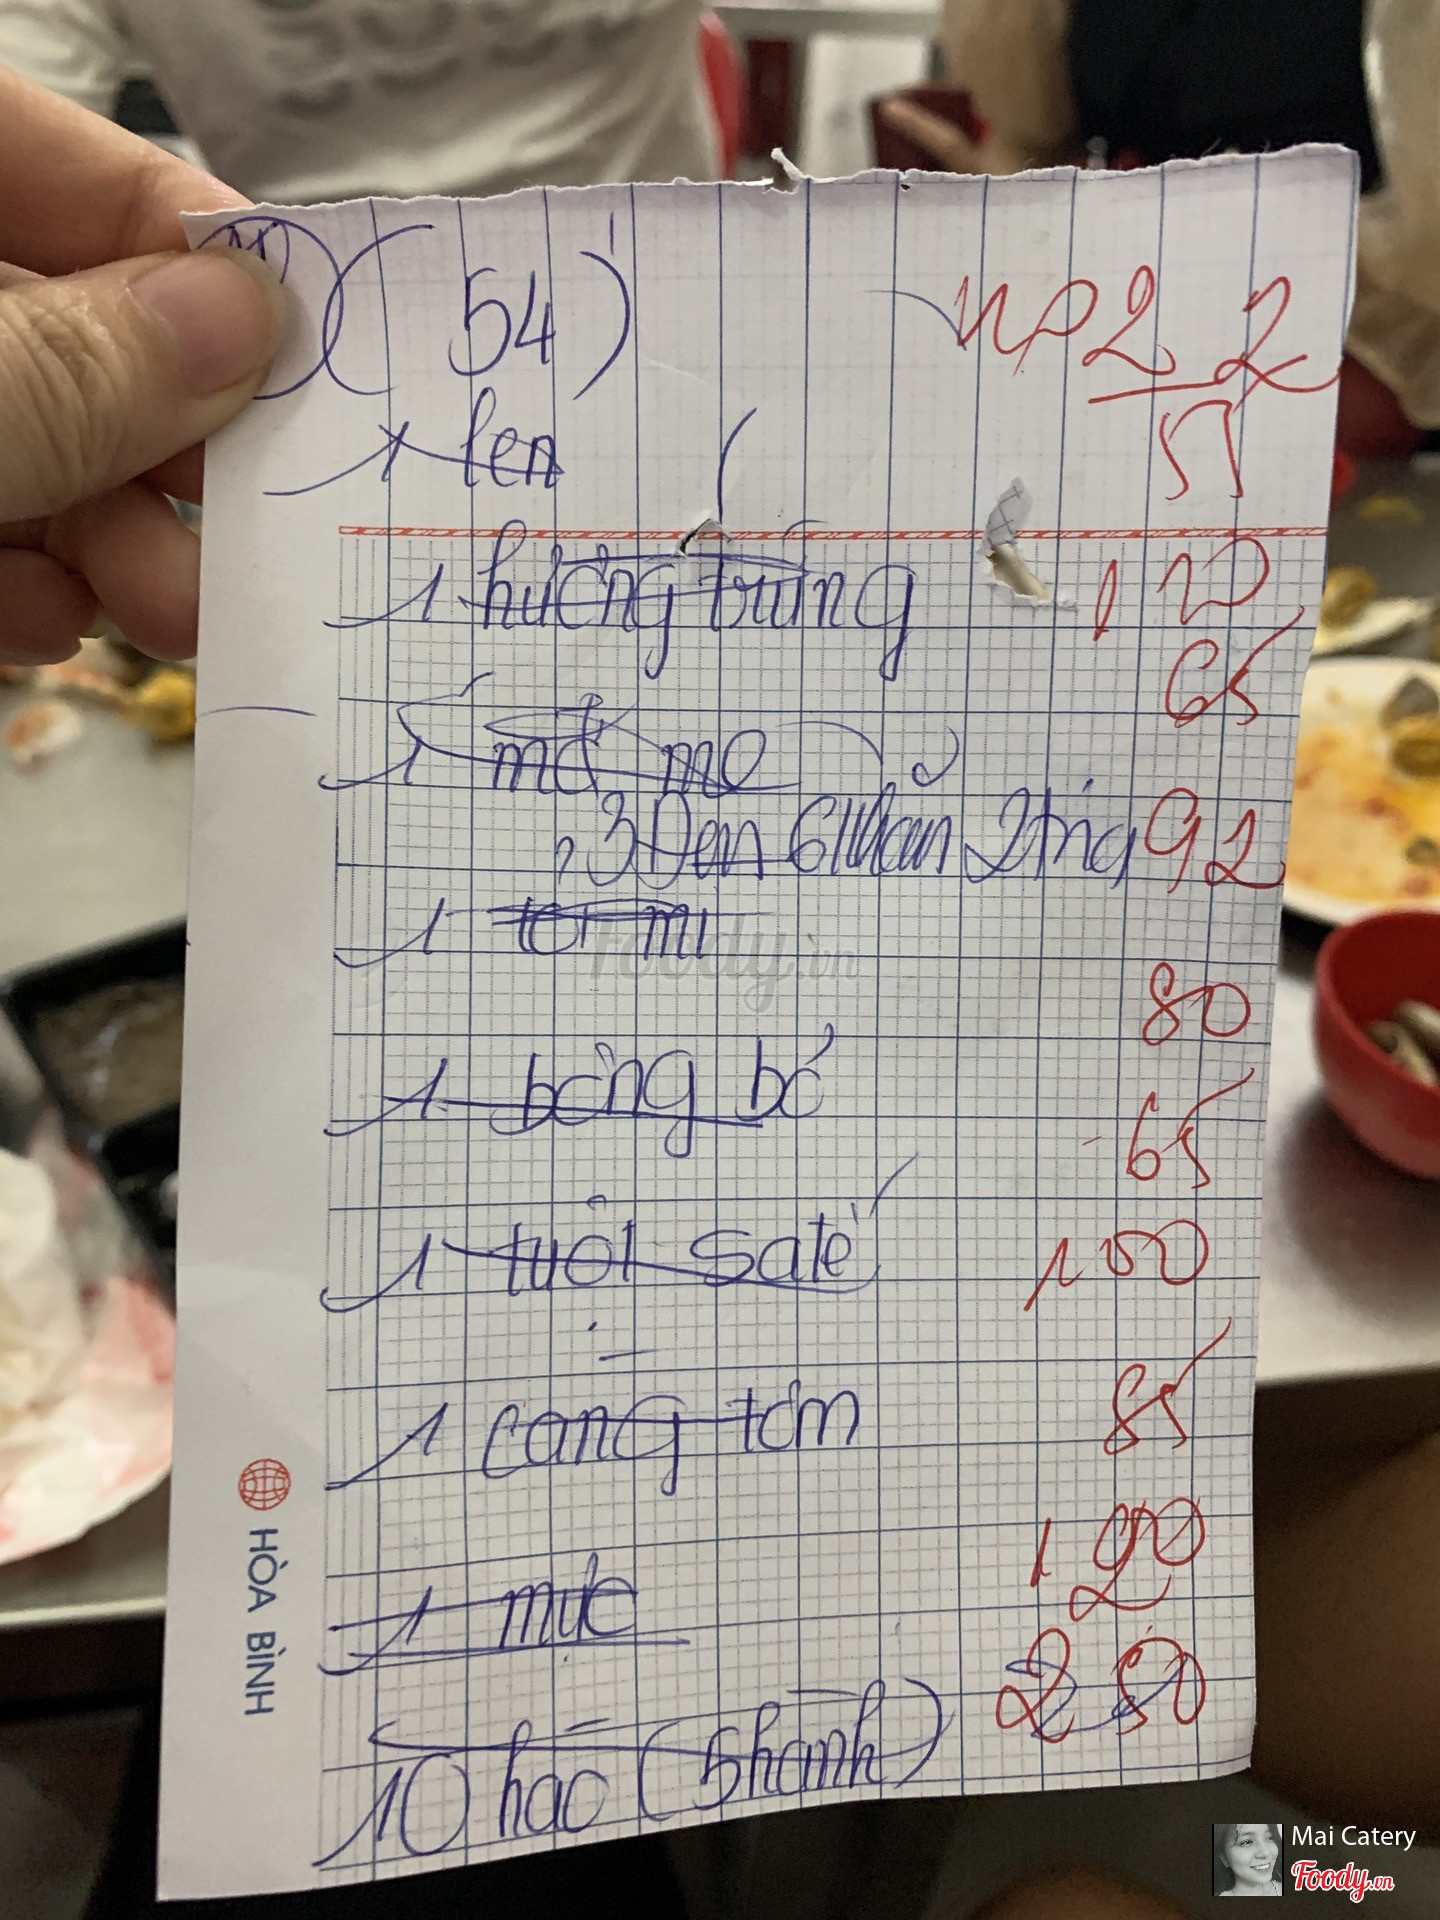 (54) up2 2
1 len 55
1 hương trứng 120
65
1 mơ me
, 3 Đen 6 Nhản 2 ting 92
1 tỏi mi
80
1 bông bó
65
1 tuôi saté
100
1 cang tôm 85
120
1 mực
250
10 hào (5 hành)
HÒA BÌNH
Foody.vn
Mai Catery
Foody.vn